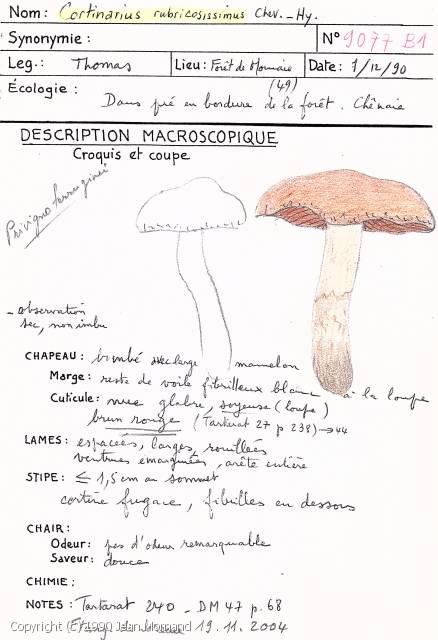 Nom: Cortinarius rubricosissimus Chev. - Hy.
Synonymie :
N° 9077 B1
Leg.: Thomas
Lieu: Forêt de Monnaie (49)
Date: 7/12/90
Écologie : Dans pré en bordure de la forêt. Chênaie
DESCRIPTION MACROSCOPIQUE
Croquis et coupe
Privigno ferruginei
- observation
sec, non imbu
CHAPEAU : bombé large mamelon
Marge: reste de voile fibrilleux blanc à la loupe
Cuticule: nue glabre, soyeuse (loupe)
brun rouge (Tartarat 27 p 238) → 44
LAMES : espacées, larges, rouillées
ventrues émarginées, arête entière
STIPE : ≤ 1,5 cm au sommet
cortine fugace, fibrilles en dessous
CHAIR :
Odeur: pas d'odeur remarquable
Saveur: douce
CHIMIE :
NOTES : Tartarat 240 - DM 47 p. 68
19.11.2004
Copyright (c) 1990 Jean Mornand